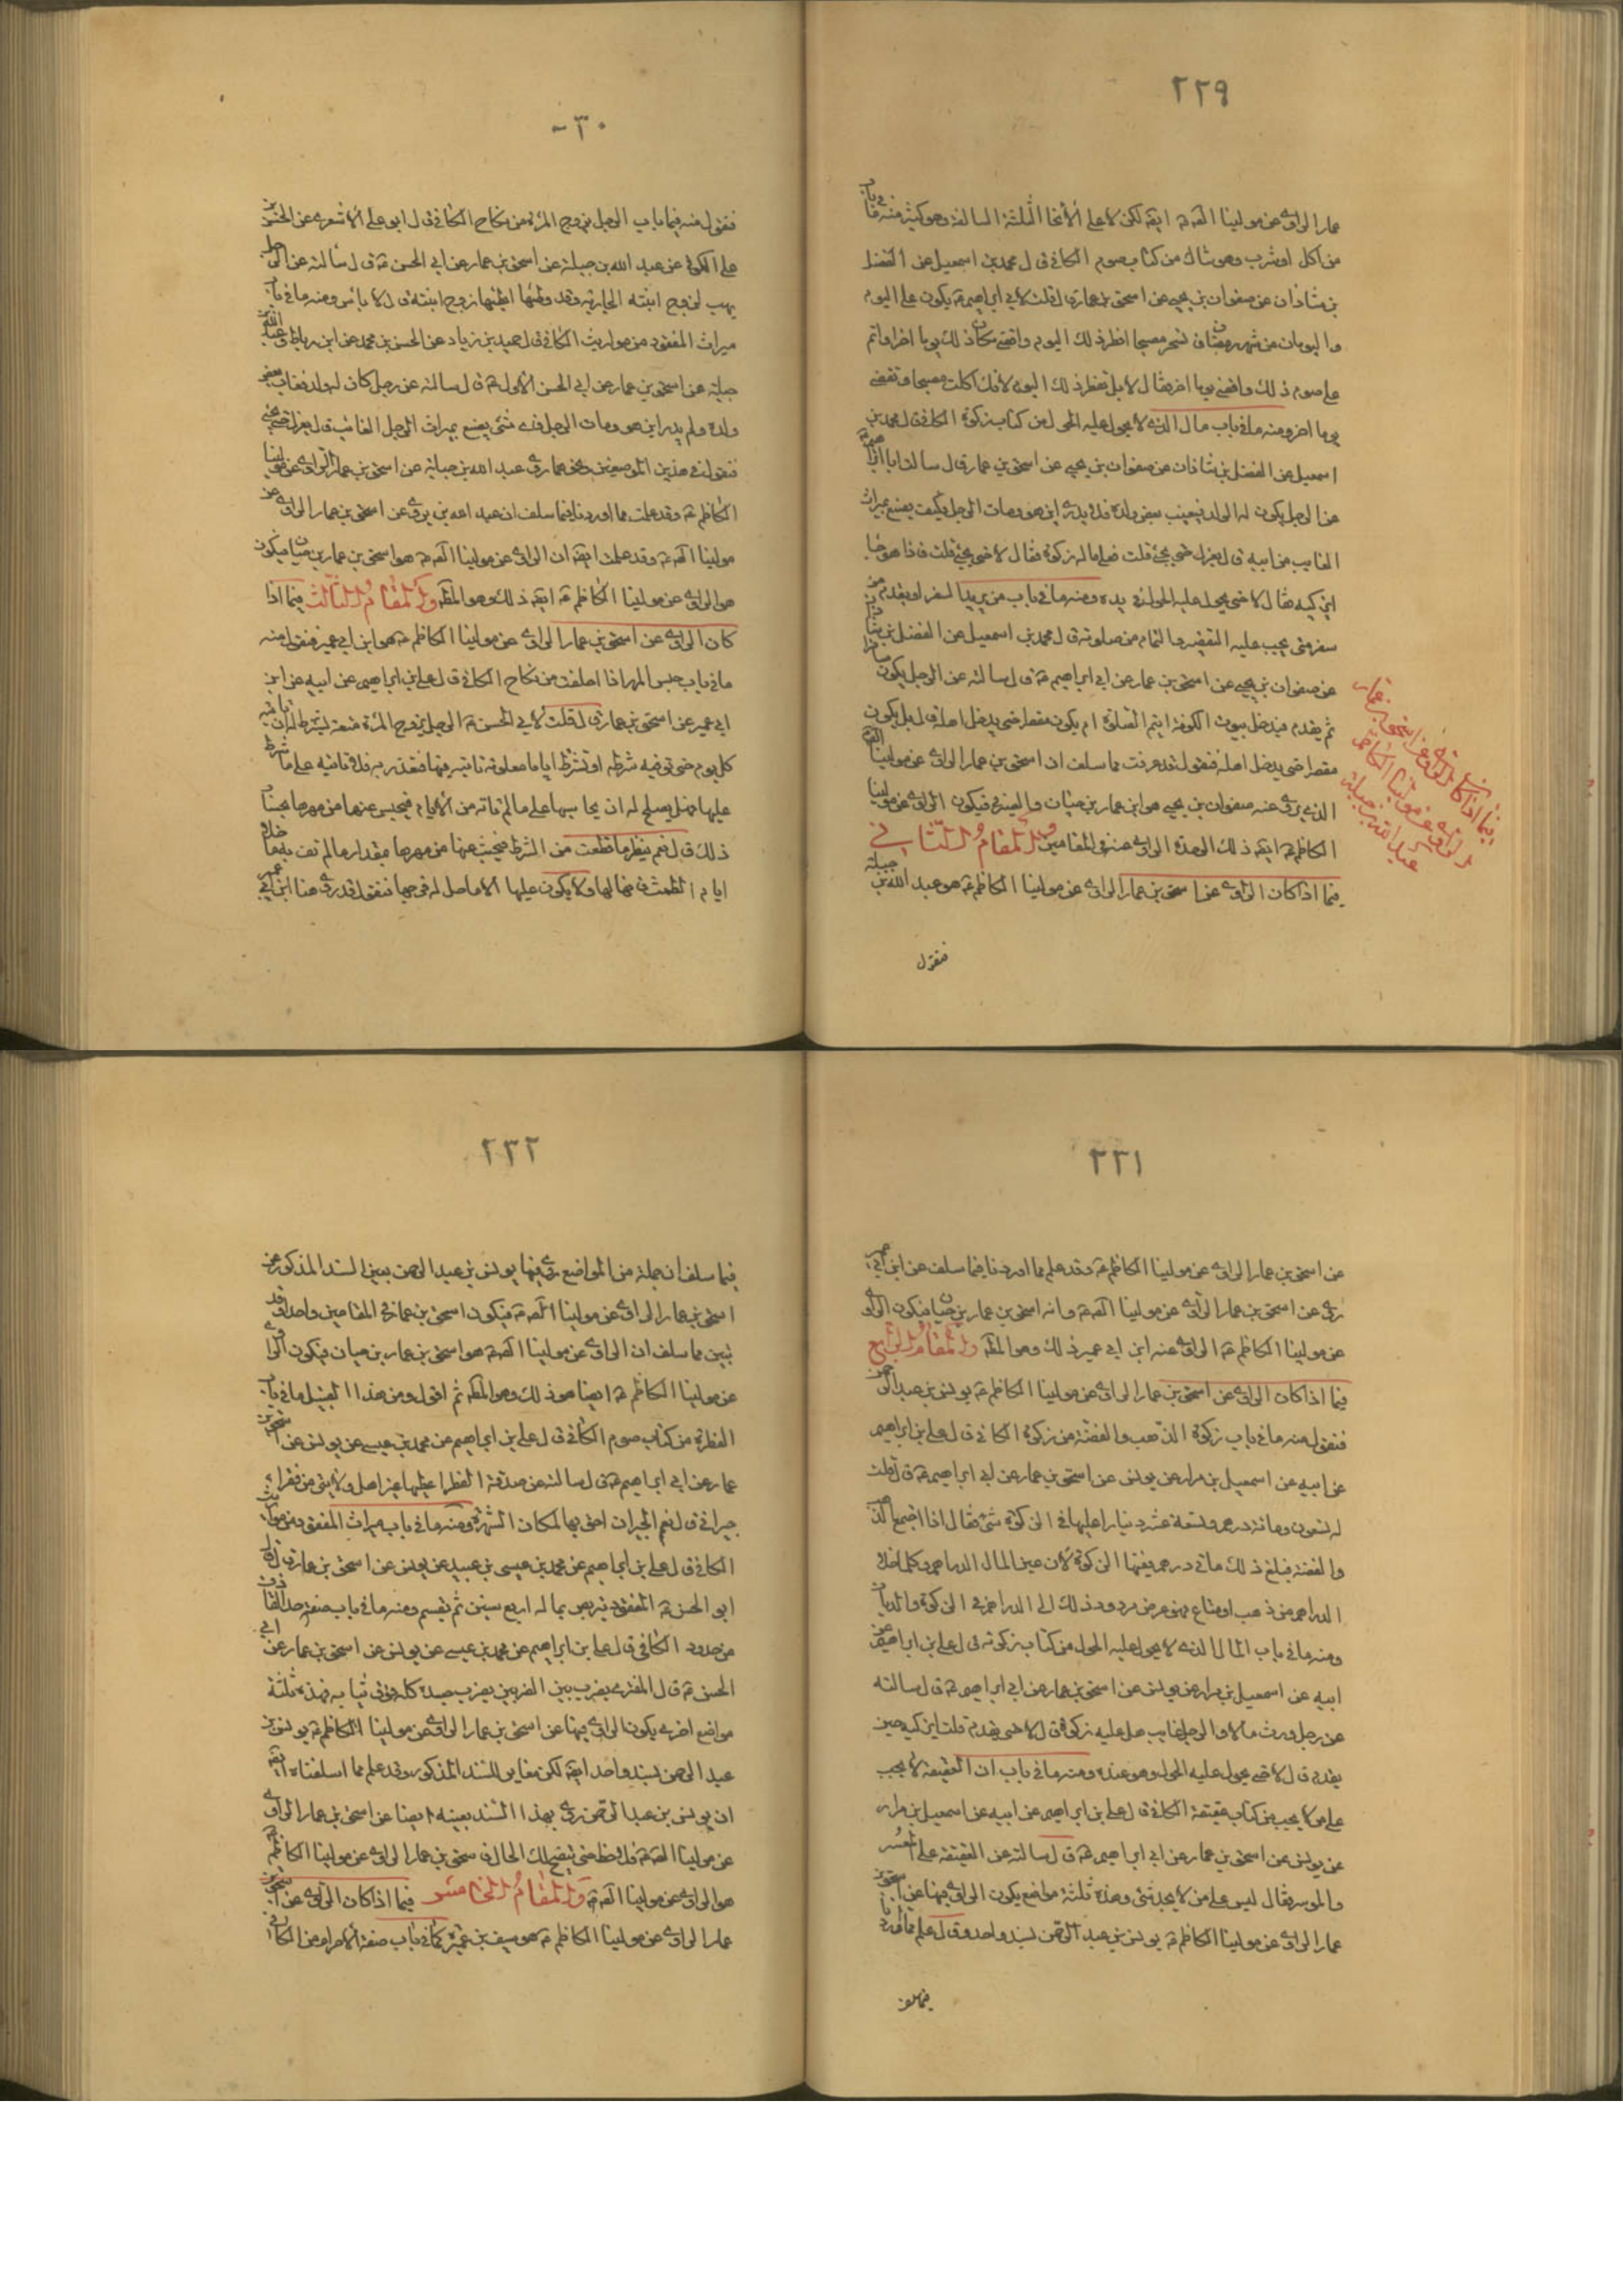 ٢٢٩
عمار الراوى عن مولينا الصـ ع ايضـ لكن لا على الأنحا الثلثة السالفة وهو كثير منه ما فى باب
من اكل او شرب وهو شاك من كتاب صوم الكافى ق ل محمد بن اسمعيل عن الفضل
بن شاذان عن صفوان بن يحيى عن اسحق بن عمار ق ل قلت لابى ابراهيم ع يكون على اليوم
واليومان من شهر رمضان فتسحر مصبحا افطر ذلك اليوم واقضى مكان ذلك يوما اخر او اتم
على صوم ذلك واقضى يوما اخر فقال لا بل تفطر ذلك اليوم لانك اكلت مصبحا وتقضى
يوما اخر ومنه ما فى باب مال الذى لا يحول عليه الحول من كتاب زكوة الكافى ق ل محمد بن
اسمعيل عن الفضل بن شاذان عن صفوان بن يحيى عن اسحق بن عمار ق ل سالت ابا ابراهيم ع
عن الرجل يكون له الولد فيغيب بعض ولده فلا يدرى اين هو ومات الرجل فكيف يصنع بميراث
الغايب من ابيه ق ل يعزل حتى يجئ قلت فعلى ماله زكوة فقال لا حتى يجئ قلت فاذا هو جا
ايزكيه فقال لا حتى يحول عليه الحول فى يده ومنه ما فى باب من يريد السفر او يقدم من
سفر متى يجب عليه التقصير والتمام من صلوته ق ل محمد بن اسمعيل عن الفضل بن شاذان
عن صفوان بن يحيى عن اسحق بن عمار عن ابى ابراهيم ع ق ل سالته عن الرجل يكون مسافرا
ثم يقدم فيدخل بيوت الكوفة ايتم الصلوة ام يكون مقصرا حتى يدخل اهله ق ل بل يكون
مقصرا حتى يدخل اهله فنقول قد عرفت مما سلف ان اسحق بن عمار الراوى عن مولينا الصـ ع
الذى يروى عنه صفوان بن يحيى هو ابن عمار بن حيان والصيرفى فيكون الراوى عن مولينا
الكاظم ع ايضـ ذلك لوحدة الراوى عنه فى المقامين والمقام الثانى
فيما اذا كان الراوى عن اسحق بن عمار الراوى عن مولينا الكاظم ع هو عبد الله بن جبلة
فنقول
فيما اذا كان الراوى عن اسحق بن عمار
الراوى عن مولينا الكاظم
عبد الله بن جبلة
٢٣٠
فنقول منه فيما باب الرجل يزوج المرأة من نكاح الكافى ق ل ابو على الأشعرى عن الحسن بن
على الكوفى عن عبد الله بن جبلة عن اسحق بن عمار عن ابى الحسن ع ق ل سالته عن الرجل
يهب لزوج ابنته الجارية وقد وطئها ايطئها زوج ابنته ق ل لا باس ومنه ما فى باب
ميراث المفقود من مواريث الكافى ق ل حميد بن زياد عن الحسن بن محمد عن ابن رباط وعبد الله بن
جبلة عن اسحق بن عمار عن ابى الحسن الأول ع ق ل سالته عن رجل كان له ولد فغاب بعض
ولده ولم يدر اين هو ومات الرجل فاى شئ يصنع بميراث الرجل الغائب ق ل يعزل حتى يجئ
فنقول فى هذين الموضعين ونحوهما روى عبد الله بن جبلة عن اسحق بن عمار الراوى عن مولينا
الكاظم ع وقد علمت مما اوردنا فيما سلف ان عبد الله بن يروى عن اسحق بن عمار الراوى عن
مولينا الصـ ع وقد علمت ايضـ ان الراوى عن مولينا الصـ ع هو اسحق بن عمار بن حيان فيكون
هو الراوى عن مولينا الكاظم ع ايضـ ذلك وهو المطـ والمقام الثالث فيما اذا
كان الراوى عن اسحق بن عمار الراوى عن مولينا الكاظم ع هو ابن ابى عمير فنقول منه
ما فى باب حبس المهر اذا اخلفت من نكاح الكافى ق ل على بن ابراهيم عن ابيه عن ابن
ابى عمير عن اسحق بن عمار ق ل قلت لابى الحسن ع الرجل يزوج المرة متعة يشترط له ان تاتيه
كل يوم حتى توفيه شرطه او تشترط اياما معلومة تاتيه فيها فتغدر به فلا تاتيه على ما شرط
عليها فهل يصلح له ان يحاسبها على ما لم تاته من الأيام فيحبس عنها من مهرها بحساب
ذلك ق ل نعم ينظر ما قطعت من الشرط فيحبس عنها من مهرها مقدار ما لم تف به ما خلا
ايام الطمث فانها لها ولا يكون عليها الا ما حل له فرجها فنقول قد روى هنا ابن ابى عمير
٢٣١
عن اسحق بن عمار الراوى عن مولينا الكاظم ع وقد علم مما اوردنا فيما سلف عن ابن ابى عمير
روى عن اسحق بن عمار الراوى عن مولينا الصـ ع وانه اسحق بن عمار بن حيان فيكون الراوى
عن مولينا الكاظم ع الراوى عنه ابن ابى عمير ذلك وهو المطـ والمقام الرابع
فيما اذا كان الراوى عن اسحق بن عمار الراوى عن مولينا الكاظم ع يونس بن عبد الرحمن
فنقول منه ما فى باب زكوة الذهب والفضة من زكوة الكافى ق ل على بن ابراهيم
عن ابيه عن اسمعيل بن مرار عن يونس عن اسحق بن عمار عن ابى ابراهيم ع ق ل قلت
له تسعون ومائة درهم وتسعة عشر دينارا عليها فى الزكوة شئ فقال اذا اجتمع الذهب
والفضة فبلغ ذلك مائتى درهم ففيها الزكوة لان عين المال الدراهم وكلما خلا
الدراهم من ذهب او متاع فهو عرض مردود ذلك الى الدراهم فى الزكوة والديات
ومنه ما فى باب المال الذى لا يحول عليه الحول من كتاب زكوته ق ل على بن ابراهيم عن
ابيه عن اسمعيل بن مرار عن يونس عن اسحق بن عمار عن ابى ابراهيم ع ق ل سالته
عن رجل ورث مالا والرجل غايب هل عليه زكوة ق ل لا حتى يقدم قلت ايزكيه حين
يقدم ق ل لا حتى يحول عليه الحول وهو عنده ومنه ما فى باب ان العقيقة لا تجب
على من لا يجب من كتاب عقيقة الكافى ق ل على بن ابراهيم عن ابيه عن اسمعيل بن مرار
عن يونس عن اسحق بن عمار عن ابى ابراهيم ع ق ل سالته عن العقيقة على المعسر
والموسر فقال ليس على من لا يجد شئ وهذه ثلثة مواضع يكون الراوى فيها عن اسحق بن
عمار الراوى عن مولينا الكاظم ع يونس بن عبد الرحمن بسند واحد وق ل علم مما اوردنا
فيما سلف
٢٣٢
فيما سلف ان جملة من المواضع روى فيها يونس بن عبد الرحمن بعين السند المذكور عن
اسحق بن عمار الراوى عن مولينا الصـ ع فيكون اسحق بن عمار فى المقامين واحدا وقد
تبين مما سلف ان الراوى عن مولينا الصـ ع هو اسحق بن عمار بن حيان فيكون الراوى
عن مولينا الكاظم ع ايضا هو ذلك وهو المطـ ثم اقول ومن هذا القبيل ما فى باب
الفطرة من كتاب صوم الكافى ق ل على بن ابراهيم عن محمد بن عيسى عن يونس عن اسحق بن
عمار عن ابى ابراهيم ع ق ل سالته عن صدقة الفطرة اعطيها غير اهل ولايتى من فقراء
جيرانى ق ل نعم الجيران احق بها لمكان الشهرة ومنه ما فى باب ميراث المفقود من مواريث
الكافى ق ل على بن ابراهيم عن محمد بن عيسى بن عبيد عن يونس عن اسحق بن عمار ق ل قال
ابو الحسن ع المفقود يتربص بماله اربع سنين ثم يقسم ومنه ما فى باب صفة حد القاذف
من حدود الكافى ق ل على بن ابراهيم عن محمد بن عيسى عن يونس عن اسحق بن عمار عن ابى
الحسن ع ق ل المفترى يضرب بين الضربين يضرب جسده كله فوق ثيابه فهذه ثلثة
مواضع اخرى يكون الراوى فيها عن اسحق بن عمار الراوى عن مولينا الكاظم ع يونس بن
عبد الرحمن بسند واحد ايضـ لكن مغاير للسند المذكور وقد علم مما اسلفناه ايضـ
ان يونس بن عبد الرحمن روى بهذا السند بعينه ايضا عن اسحق بن عمار الراوى
عن مولينا الصـ ع فلاحظ حتى يتضح لك الحال فاسحق بن عمار الراوى عن مولينا الكاظم ع
هو الراوى عن مولينا الصـ ع والمقام الخامس فيما اذا كان الراوى عن اسحق بن
عمار الراوى عن مولينا الكاظم ع هو سيف بن عميرة كما فى باب صفة الأحرام من الكافى